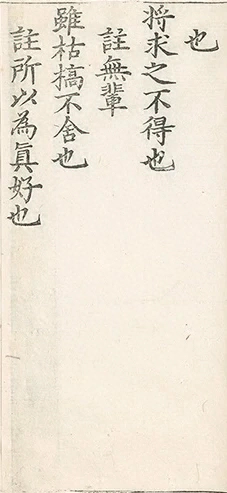 也
将求之不得也
註無輩
雖枯槁不舍也
註所以為真好也